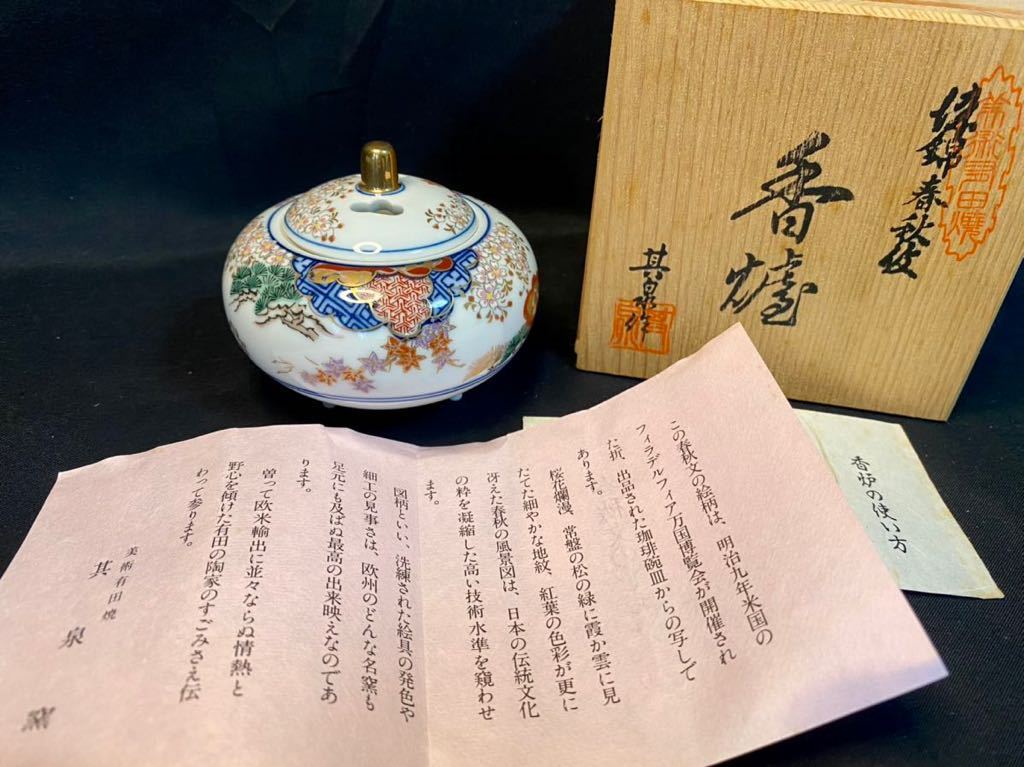 美術有田焼
染錦春秋絵
香爐
其泉作
香炉の使い方
この春秋文の絵柄は、明治九年米国の
フィラデルフィア万国博覧会が開催され
た折、出品された珈琲碗皿からの写しで
あります。
桜花爛漫、常盤の松の緑に霞か雲に見
たてた細やかな地紋、紅葉の色彩が更に
冴えた春秋の風景図は、日本の伝統文化
の粋を凝縮した高い技術水準を窺わせ
ます。
図柄といい、洗練された絵具の発色や
細工の見事さは、欧州のどんな名窯も
足元にも及ばぬ最高の出来映えなのであ
ります。
曽って欧米輸出に並々ならぬ情熱と
野心を傾けた有田の陶家のすごみさえ伝
わって参ります。
美術有田焼
其泉窯